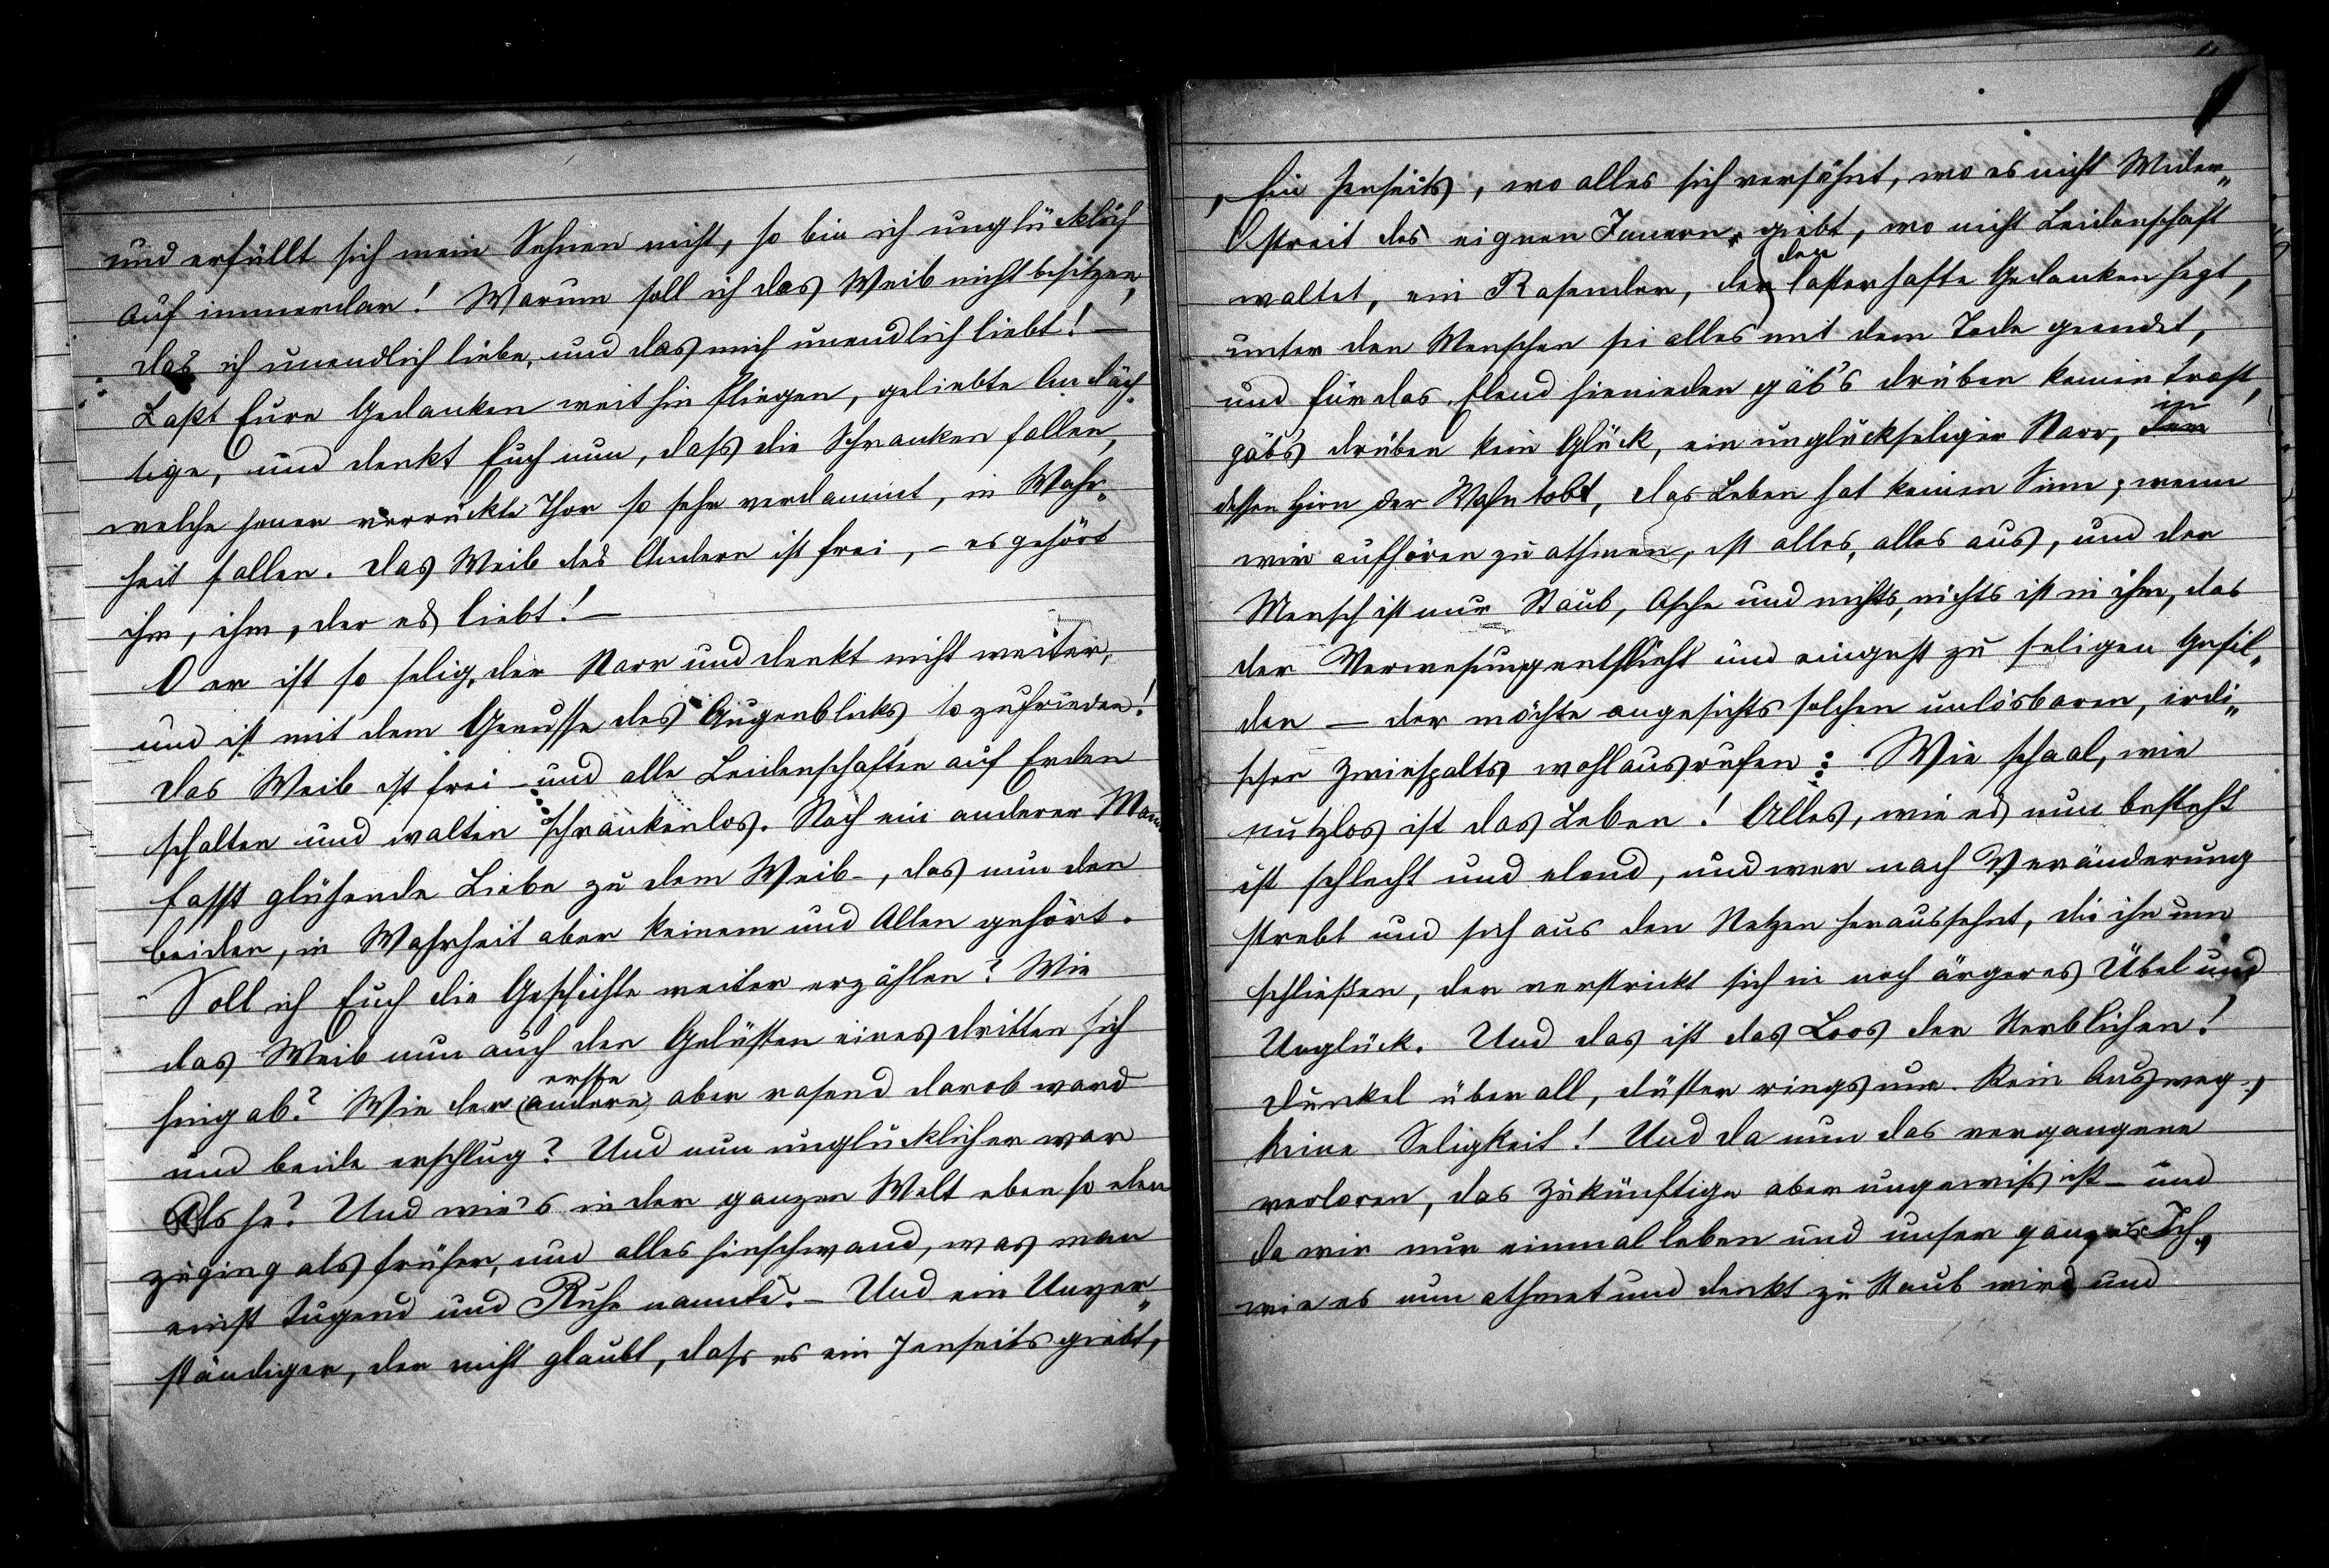 und erfüllt sich mein Sehnen nicht, so bin ich unglücklich
auf immerdar! Warum soll ich das Weib nicht besitzen,
das ich unendlich liebe, und das mich unendlich liebt! —
Laßt Eure Gedanken weithin fliegen, geliebte Andäch-
tige, und denkt Euch nun, daß die Schranken fallen,
welche jener verrückte Thor so sehr verdammt, in Wahr-
heit fallen. Das Weib des Andern ist frei, – es gehört
ihm, ihm, der es liebt! —
O er ist so selig, der Narr und denkt nicht weiter,
und ist mit dem Genusse des Augenblicks so zufrieden!
Das Weib ist frei – und alle Leidenschaften auf Erden
schalten und walten schrankenlos. Noch ein anderer Mann
fasst glühende Liebe zu dem Weib –, das nun den
beiden, in Wahrheit aber keinem und Allen gehört.
Soll ich Euch die Geschichte weiter erzählen? Wie
das Weib nun auch den Gelüsten eines dritten sich
hingab? Wie der (andere) erste aber rasend darob ward
und beide erschlug? Und nun unglücklicher war
als je? Und wie's in der ganzen Welt eben so elen
zuging als früher, und alles hinschwand, was man
einst Tugend und Ruhe nannte. – Und ein Unver-
ständiger, der nicht glaubt, dass es ein Jenseits giebt,
Ein Jenseits, wo alles sich versöhnt, wo es nicht Wider-
streit des eignen Innern giebt, wo nicht Leidenschaft
waltet, ein Rasender, der den lasterhafte Gedanken hegt,
unter den Menschen sei alles mit dem Tode geendet,
und für das Elend hienieden gäb's drüben keinen Trost,
gäb's drüben kein Glück, ein unglückseliger Narr, in
dessen Hirn der Wahn tobt, das Leben hat keinen Sinn, wenn
wir aufhören zu athmen, ist alles, alles aus, und der
Mensch ist nur Staub, Asche und nichts, nichts ist in ihm, das
der Verwesung entflieht und eingeht zu seligen Gefil-
den — der möchte angesichts solchen unlösbaren, irdi-
schen Zwiespalts wohl ausrufen: Wie schaal, wie
nutzlos ist das Leben! Alles, wie es nun besteht
ist schlecht und elend, und wer nach Veränderung
strebt und sich aus den Netzen heraussehnt, die ihn um
schließen, der verstrickt sich in noch ärgeres Übel und
Unglück. Und das ist das Loos der Sterblichen!
Dunkel überall, düster ringsum. Kein Ausweg,
keine Seligkeit! Und da nun das vergangene
verloren, das Zukünftige aber ungewiß ist – und
da wir nur einmal leben und unser ganzes Ich,
wie es nun athmet und denkt zu Staub wird und